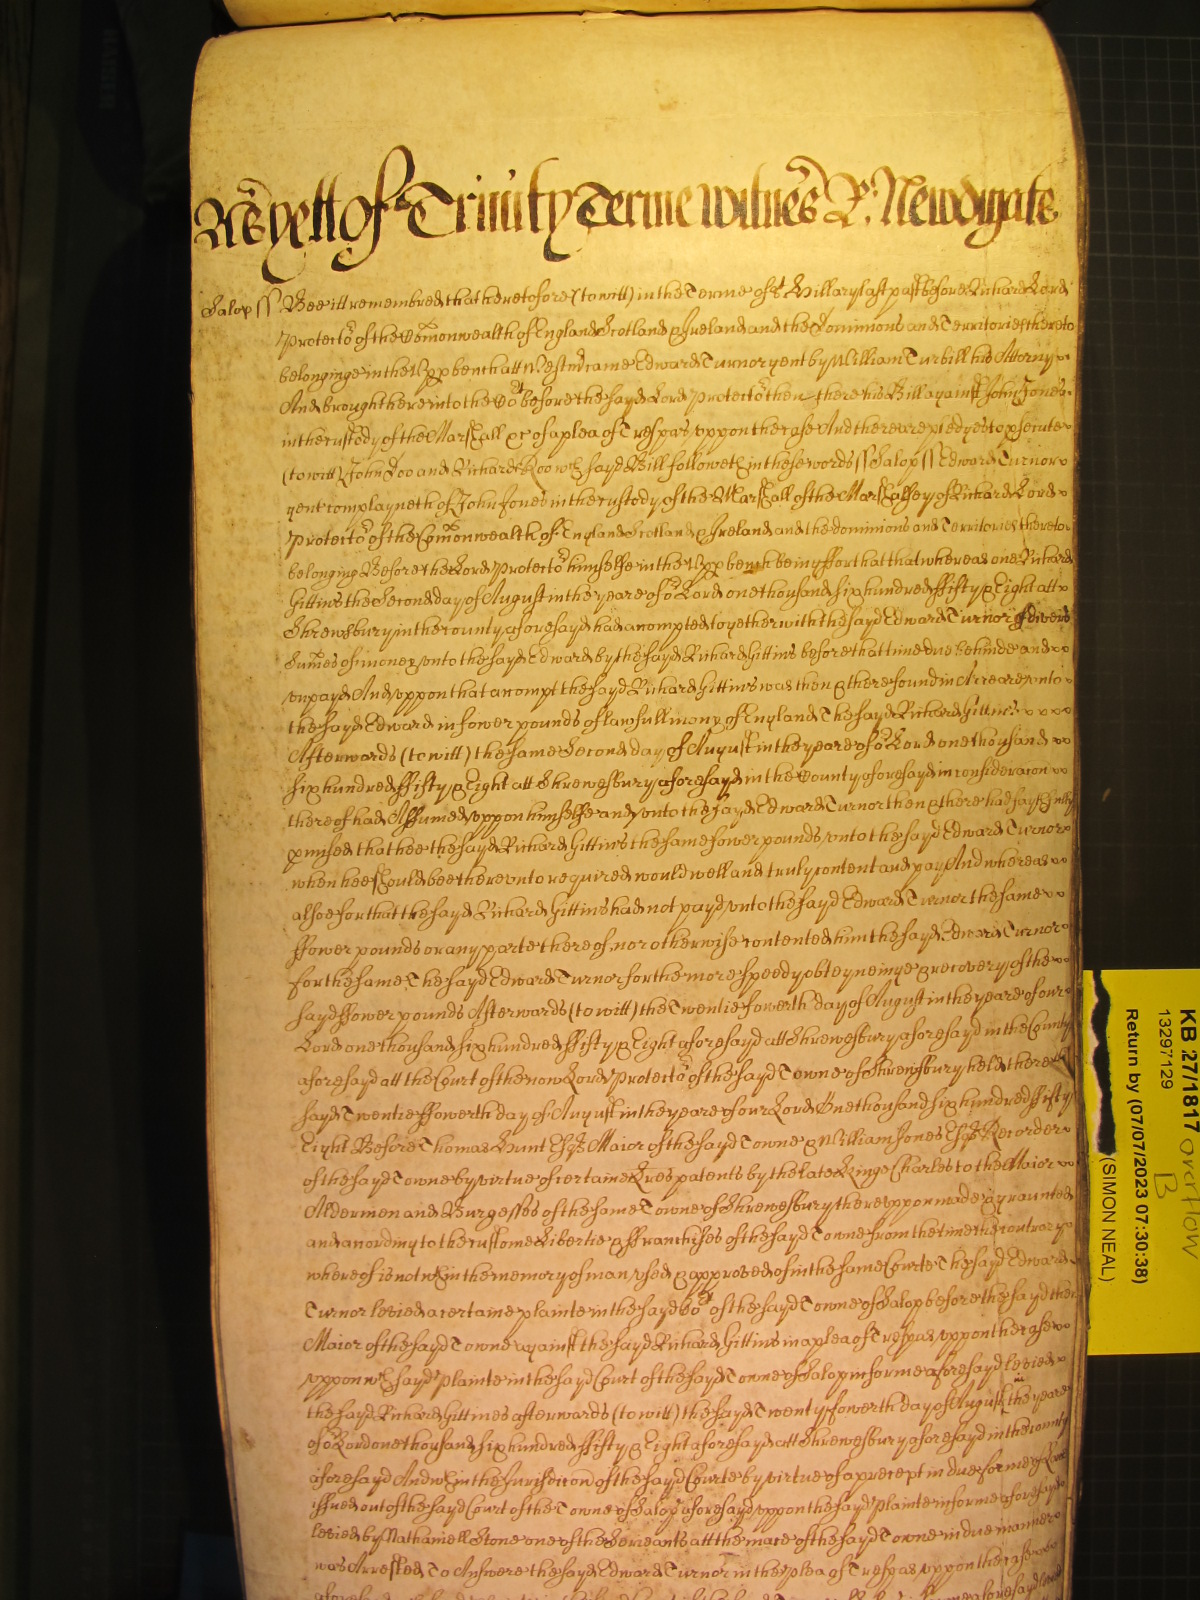 As yett of Trinity Terme Witnes R: Newdigate
Salop ss Bee itt remembred that heretofore (to witt) in the Terme of St Hillary last past before Richard Lord
Protector of the Comonwealth of England Scotland & Ireland and the Dominions and Territories thereto
belonginge in the Upp bench att Westmr came Edward Turnor gent by William Turbill his Attorny
And brought here into the Cort before the sayd Lord Protector then & there his Bill against John Jones
in the custody of the Marshall &c of a plea of Trespas uppon the case And there are pledges to psecute
(to witt) John Doo and Richard Roo wch sayd Bill followeth in these words ss Salop ss Edward Turnor
gent complayneth of John Jones in the custody of the Marshall of the Marshalsey of Richard Lord
Protector of the Comonwealth of England Scotland & Ireland and the dominions and Territories thereto
belonging Before the Lord Protector himselfe in the Upp bench being ffor that that whereas one Richard
Gittins the Second day of August in the yeare of or Lord one thousand six hundred ffifty & Eight att
Shrewsbury in the county aforesayd had accompted together with the sayd Edward Turnor of divers
Sumes of money unto the sayd Edward by the sayd Richard Gittins before that time due behinde and
unpayd And uppon that accompt the sayd Richard Gittins was then & there found in Arreare unto
the sayd Edward in fower pounds of lawfull mony of England The sayd Richard Gittins
Afterwards (to witt) the same Second day of August in the yeare of or Lord one thousand
six hundred ffifty & Eight att Shrewesbury aforesayd in the County aforesayd in consideracon
thereof had Assumed uppon himselfe and unto the sayd Edward Turnor then & there had faythfully
pmised that hee the sayd Richard Gittins the same fower pounds unto the sayd Edward Turnor
when hee should bee thereunto required would well and truly content and pay And whereas
alsoe for that the sayd Richard Gittins had not payd unto the sayd Edward Turnor the same
ffower pounds or any parte thereof nor otherwise contented him the sayd Edward Turnor
for the same The sayd Edward Turnor for the more speedy obteyneinge & recovery of the
sayd ffower pounds Afterwards (to witt) the Twentie fowerth day of August in the yeare of our
Lord one thousand six hundred ffifty & Eight aforesayd att Shrewesbury aforesayd in the County
aforesayd att the Court of the now Lord Protector of the sayd Towne of Shrewsbury held there
sayd Twentie ffowerth day of August in the yeare of our Lord One thousand six hundred ffifty
Eight Before Thomas Hunt Esqr Maior of the sayd Towne & William Jones Esqr Recorder
of the sayd Towne by virtue of certaine Lres patents by the late Kinge Charles to the Maior
Aldermen and Burgesses of the same Towne of Shrewesbury thereuppon made & graunted
and accordinge to the custome Libertie & ffranchises of the sayd Towne from the time the contrary
whereof is not wthin the memory of man used & approved of in the same Courte The sayd Edward
Turnor levied a certaine plainte in the sayd Cort of the sayd Towne of Salop before the sayd then
Maior of the sayd Towne against the sayd Richard Gittins in a plea of Trespas uppon the case
uppon wch sayd plainte in the sayd Court of the sayd Towne of Salop in forme aforesayd levied
the sayd Richard Gittines afterwards (to witt) the sayd Twenty fowerth day of August in the yeare
of or Lord one thousand six hundred ffifty & Eight aforesayd att Shrewesbury aforesayd in the county
aforesayd And wthin the Jurisdiccon of the sayd Courte by virtue of a precept in due forme of Law
issued out of the sayd Court of the Towne of Salop aforesayd uppon the sayd plainte in forme aforesayd
levied by Nathaniell Stone one of the Serieants att the mace of the sayd Towne in due manner
was Arrested To Answere the sayd Edward Turnor in the plea of Trespas uppon the case
KB 27/1817 overflow
B
13297129
Return by (07/07/2023 07:30:38)
(SIMON NEAL)